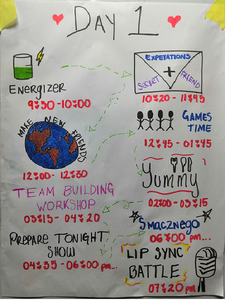 DAY 1
ENERGIZER
9:30 - 10:00
EXPECTATIONS
SECRET + FRIEND
10:20 - 11:45
MAKE NEW FRIENDS
12:00 - 12:30
GAMES
TIME
12:45 - 01:45
Yummy
02:00 - 03:15
TEAM BUILDING
WORKSHOP
03:15 - 04:20
Smacznego
06:00 pm...
PREPARE TONIGHT
SHOW
04:35 - 06:00 pm...
LIP SYNC
BATTLE
07:20 pm